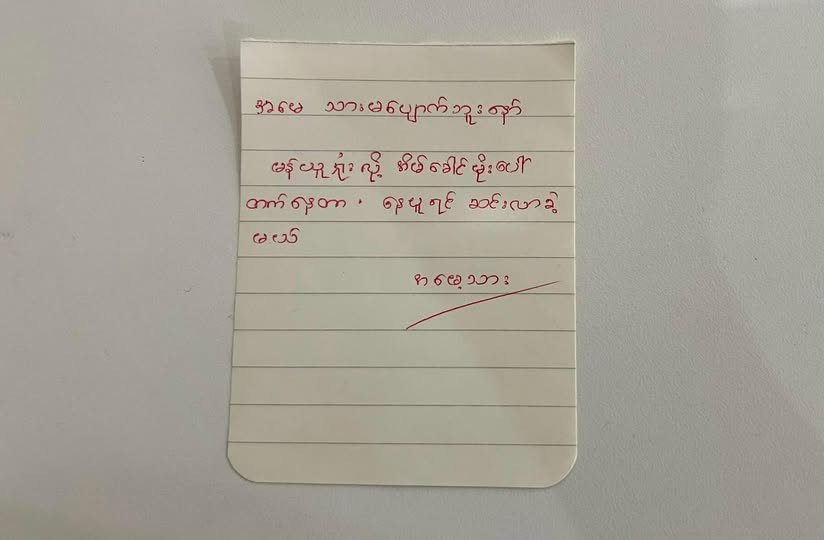 အမေ သားမပျောက်ဘူးနော်
မန်ယူရှုံးလို့ အိမ်ခေါင်မိုးပေါ်
တက်နေတာ ၊ နေပူရင် ဆင်းလာခဲ့
မယ်
အမေ့သား